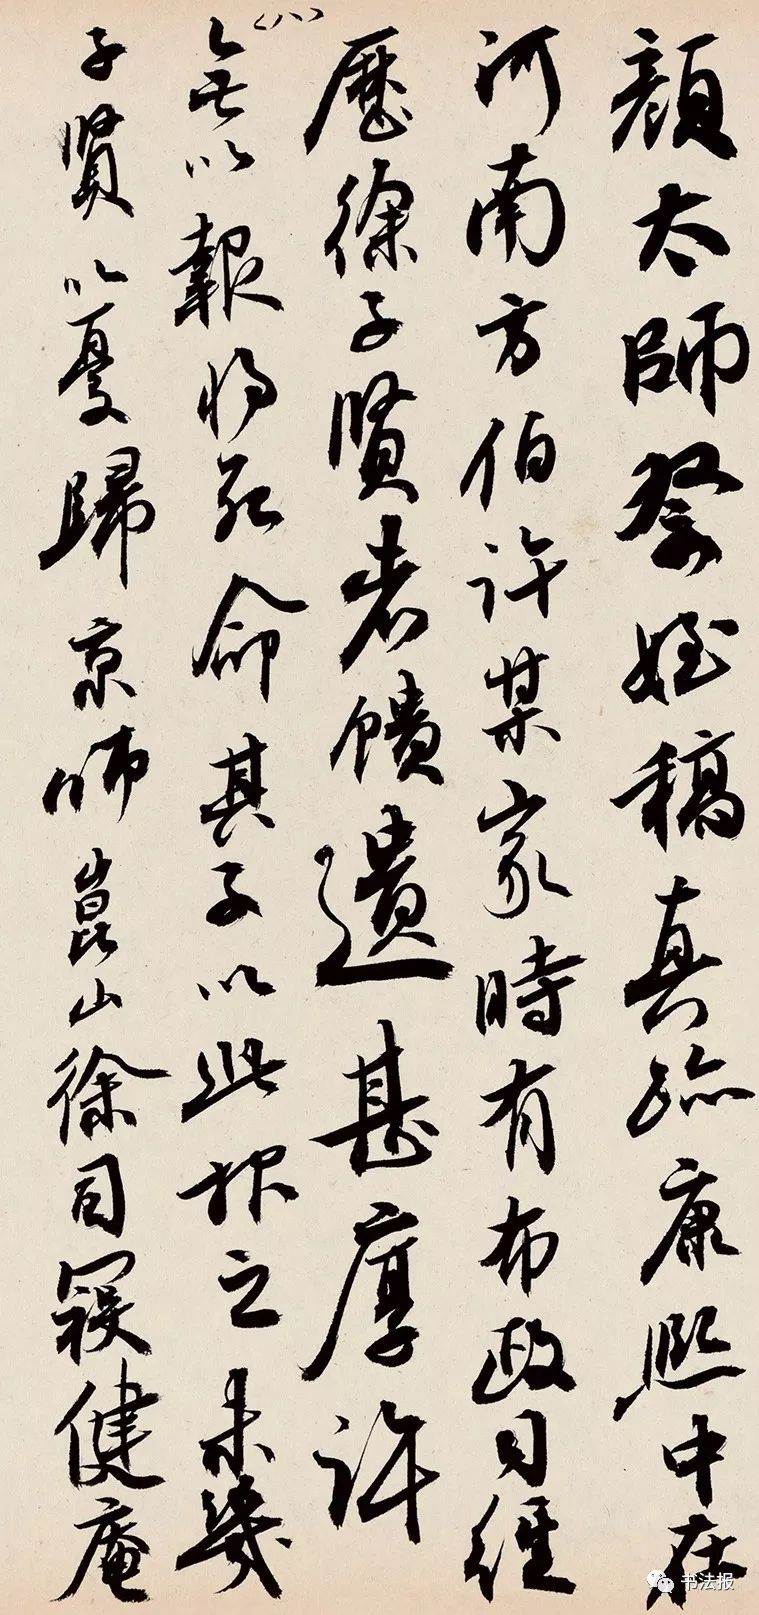 顏太師祭姪稿真跡康熙中在
河南方伯許某家時有布政司經
歷徐子賢者饋遺甚厚許
無以報將死命其子以此報之未幾
子賢以憂歸京師崑山徐司寇健庵
书法报